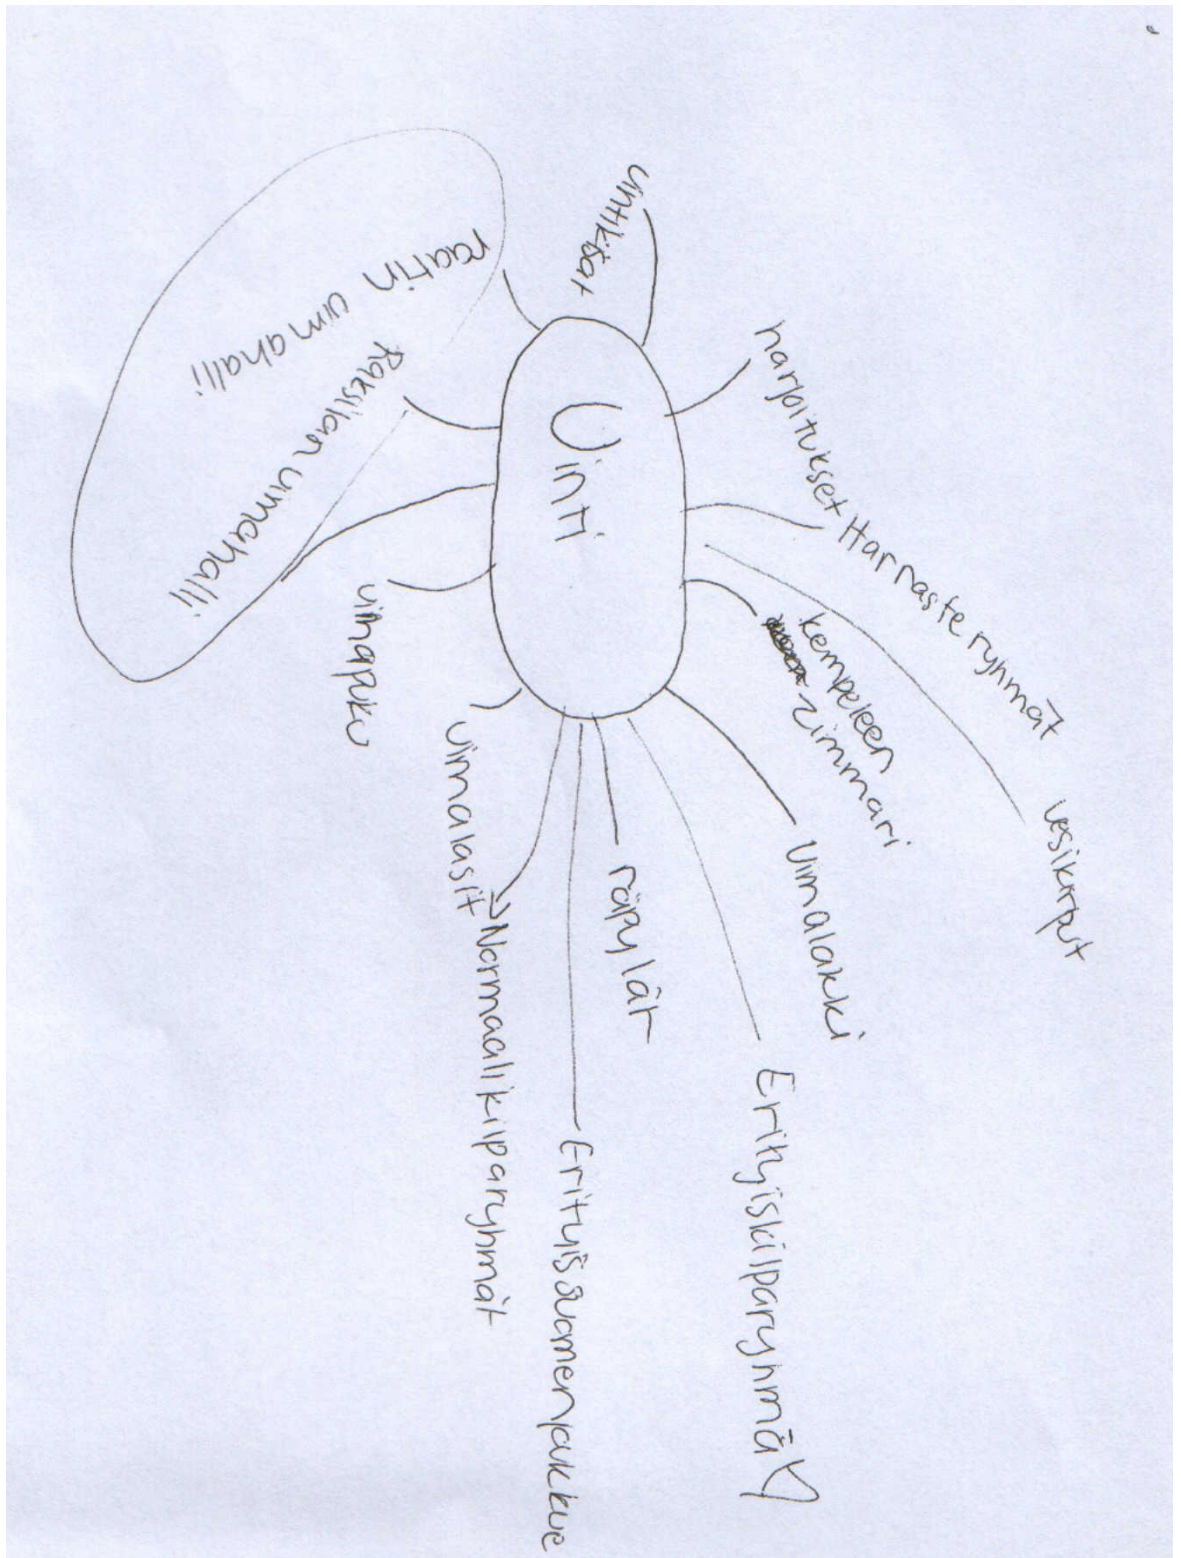 Uinti
uintikisat
harjoitukset
Harraste ryhmät
vesikirput
kempeleen
zimmari
Uimalakki
Erityiskilparyhmä
räpylät
Erityissuomenjoukkue
Normaalikilparyhmät
uimalasit
uimapuku
Raksilan uimahalli
raatin uimahalli